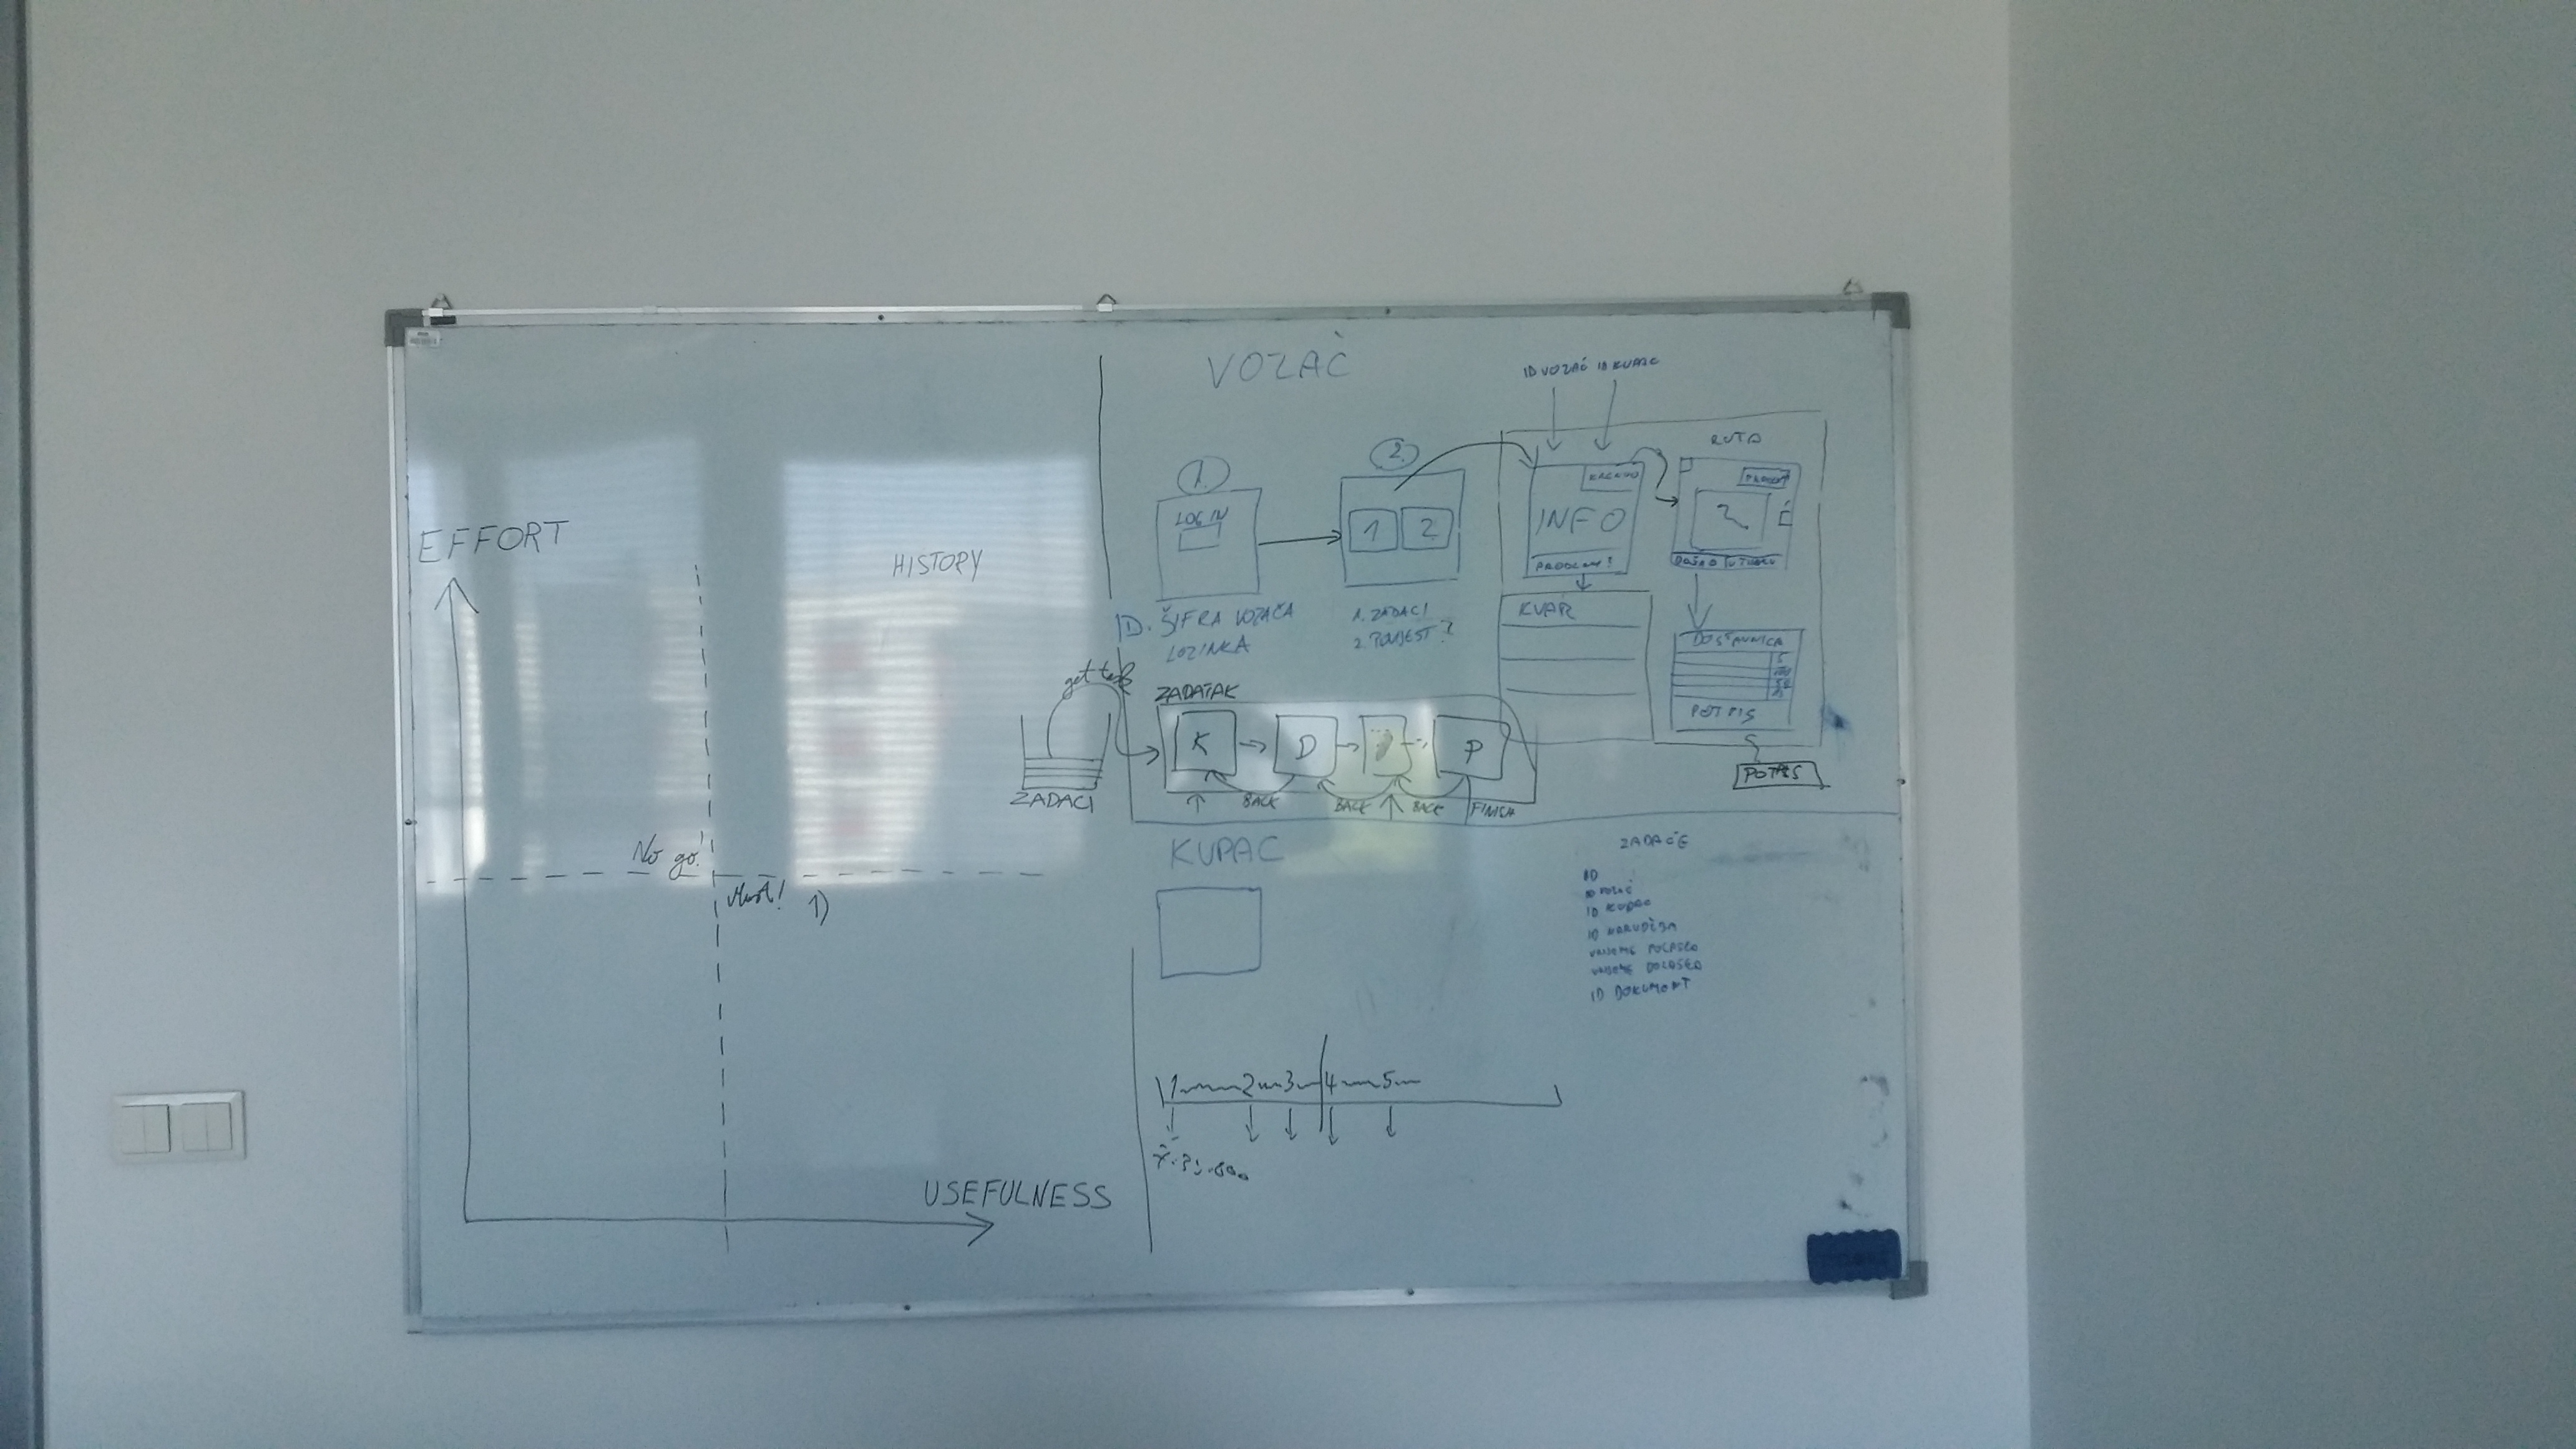 EFFORT
HISTORY
No go!
Must!
1)
USEFULNESS
VOZAČ
1.
LOG IN
ID. ŠIFRA VOZAČA
LOZINKA
2.
1 2
1. ZADACI
2. POVIJEST?
ID VOZAČ ID KUPAC
INFO
PROBLEM?
KVAR
RUTA
DOSTAVNICA
POTPIS
POTPIS
get task
ZADACI
ZADATAK
K
D
P
BACK
BACK
BACK
FINISH
KUPAC
ZADAĆE
ID
ID VOZAČ
ID KUPAC
ID NARUDŽBA
VRIJEME POLASKA
VRIJEME DOLASKA
ID DOKUMENT
1 2 3 4 5